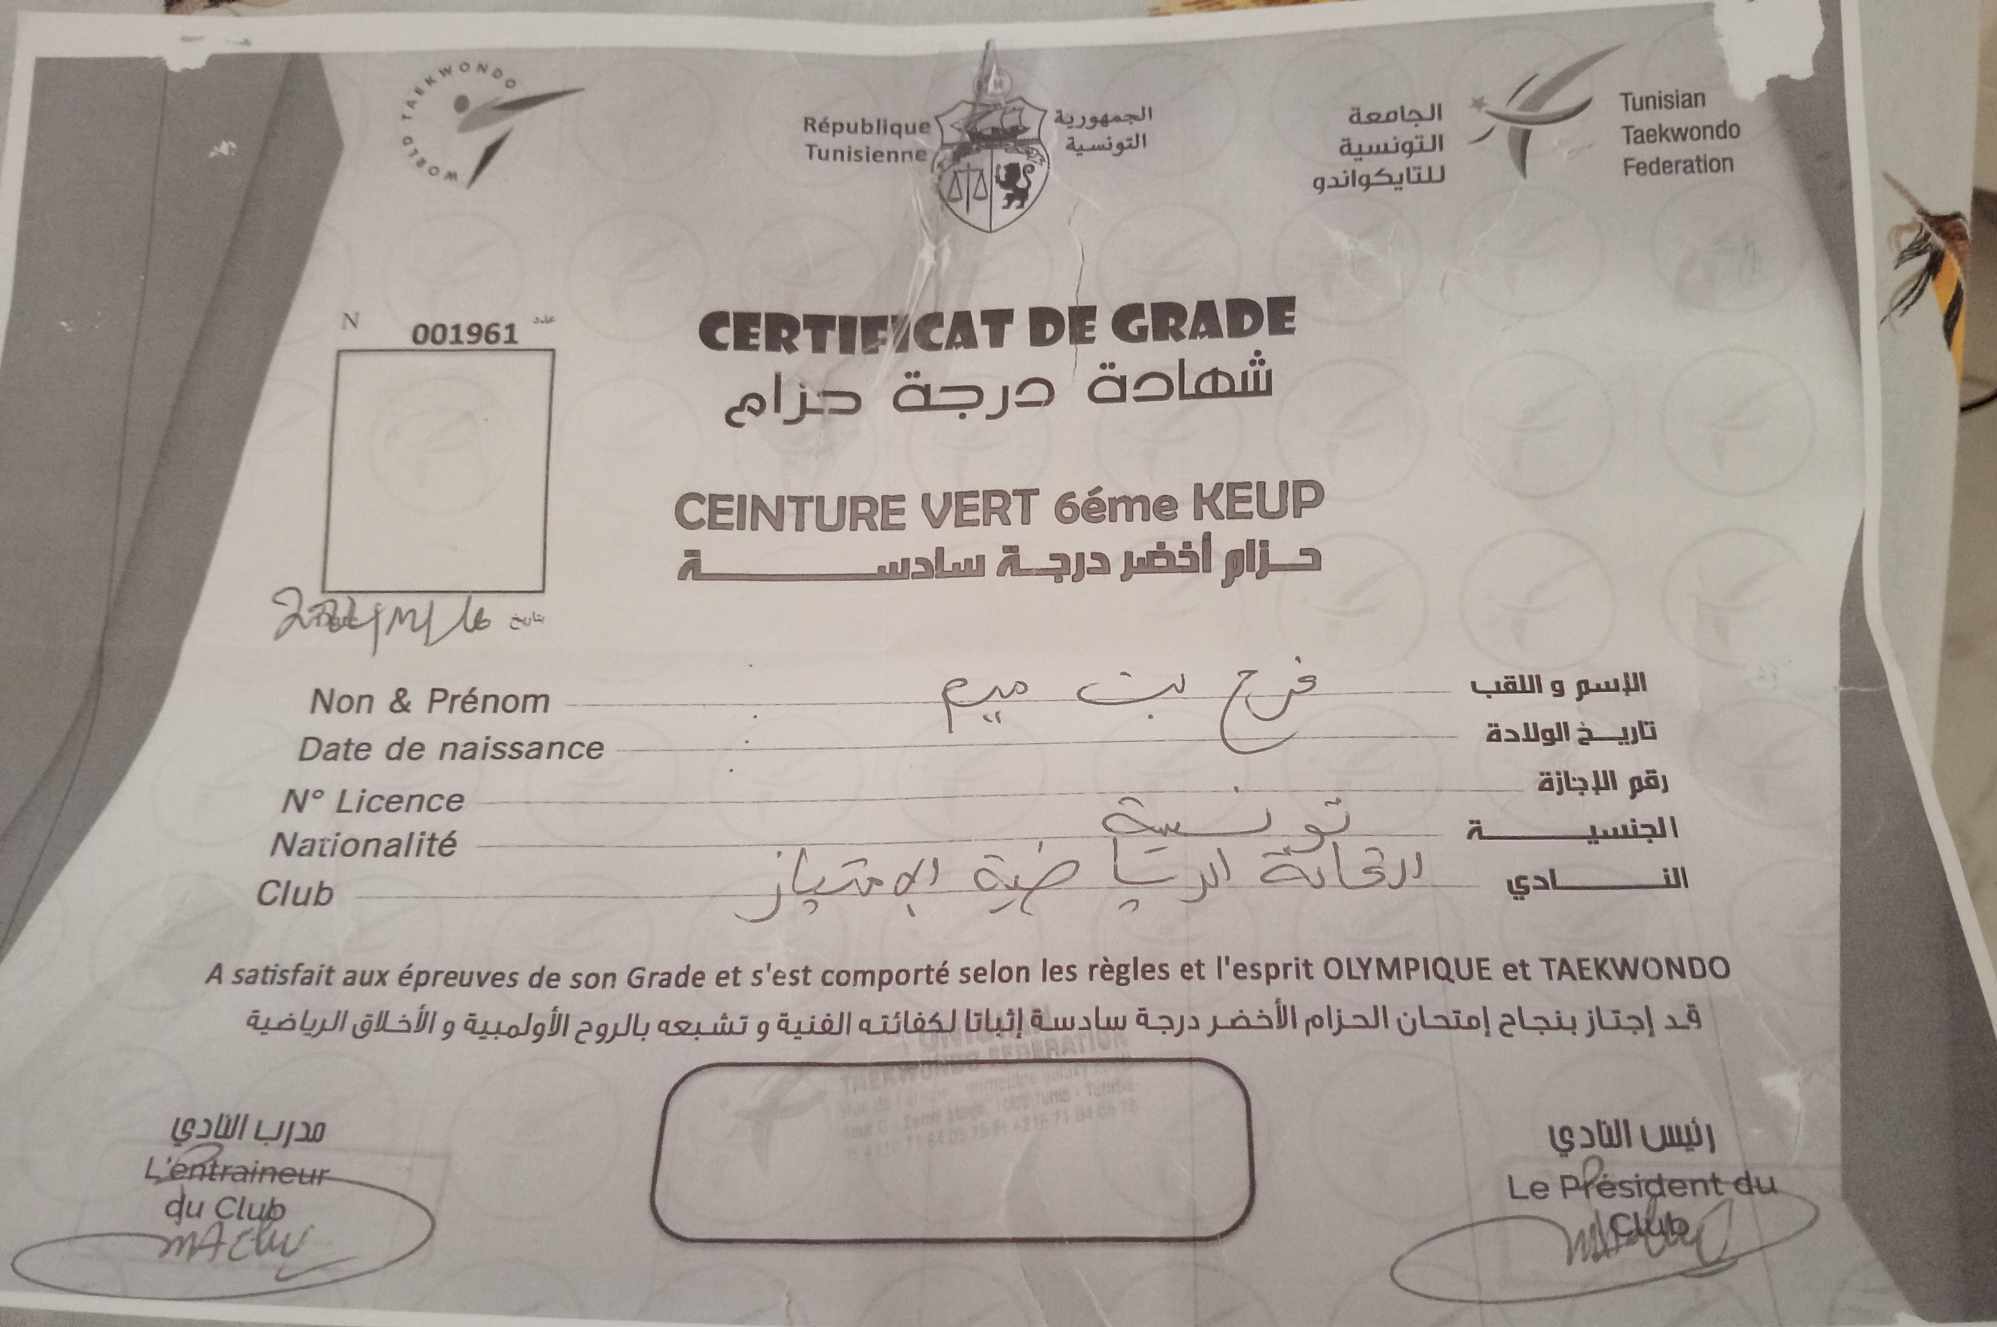 WORLD TAEKWONDO
République
Tunisienne
الجمهورية
التونسية
الجامعة
التونسية
للتايكواندو
Tunisian
Taekwondo
Federation
N 001961 عدد
CERTIFICAT DE GRADE
شهادة درجة حزام
CEINTURE VERT 6éme KEUP
حزام أخضر درجة سادسة
بتاريخ
Non & Prénom فرح بنت ميم الإسم و اللقب
Date de naissance تاريخ الولادة
N° Licence رقم الإجازة
Nationalité تونسية الجنسية
Club الرياضية الإمتياز النادي
A satisfait aux épreuves de son Grade et s'est comporté selon les règles et l'esprit OLYMPIQUE et TAEKWONDO
قد إجتاز بنجاح إمتحان الحزام الأخضر درجة سادسة إثباتا لكفائته الفنية و تشبعه بالروح الأولمبية و الأخلاق الرياضية
TAEKWONDO FEDERATION
مدرب النادي
L'entraineur
du Club
رئيس النادي
Le Président du
Club